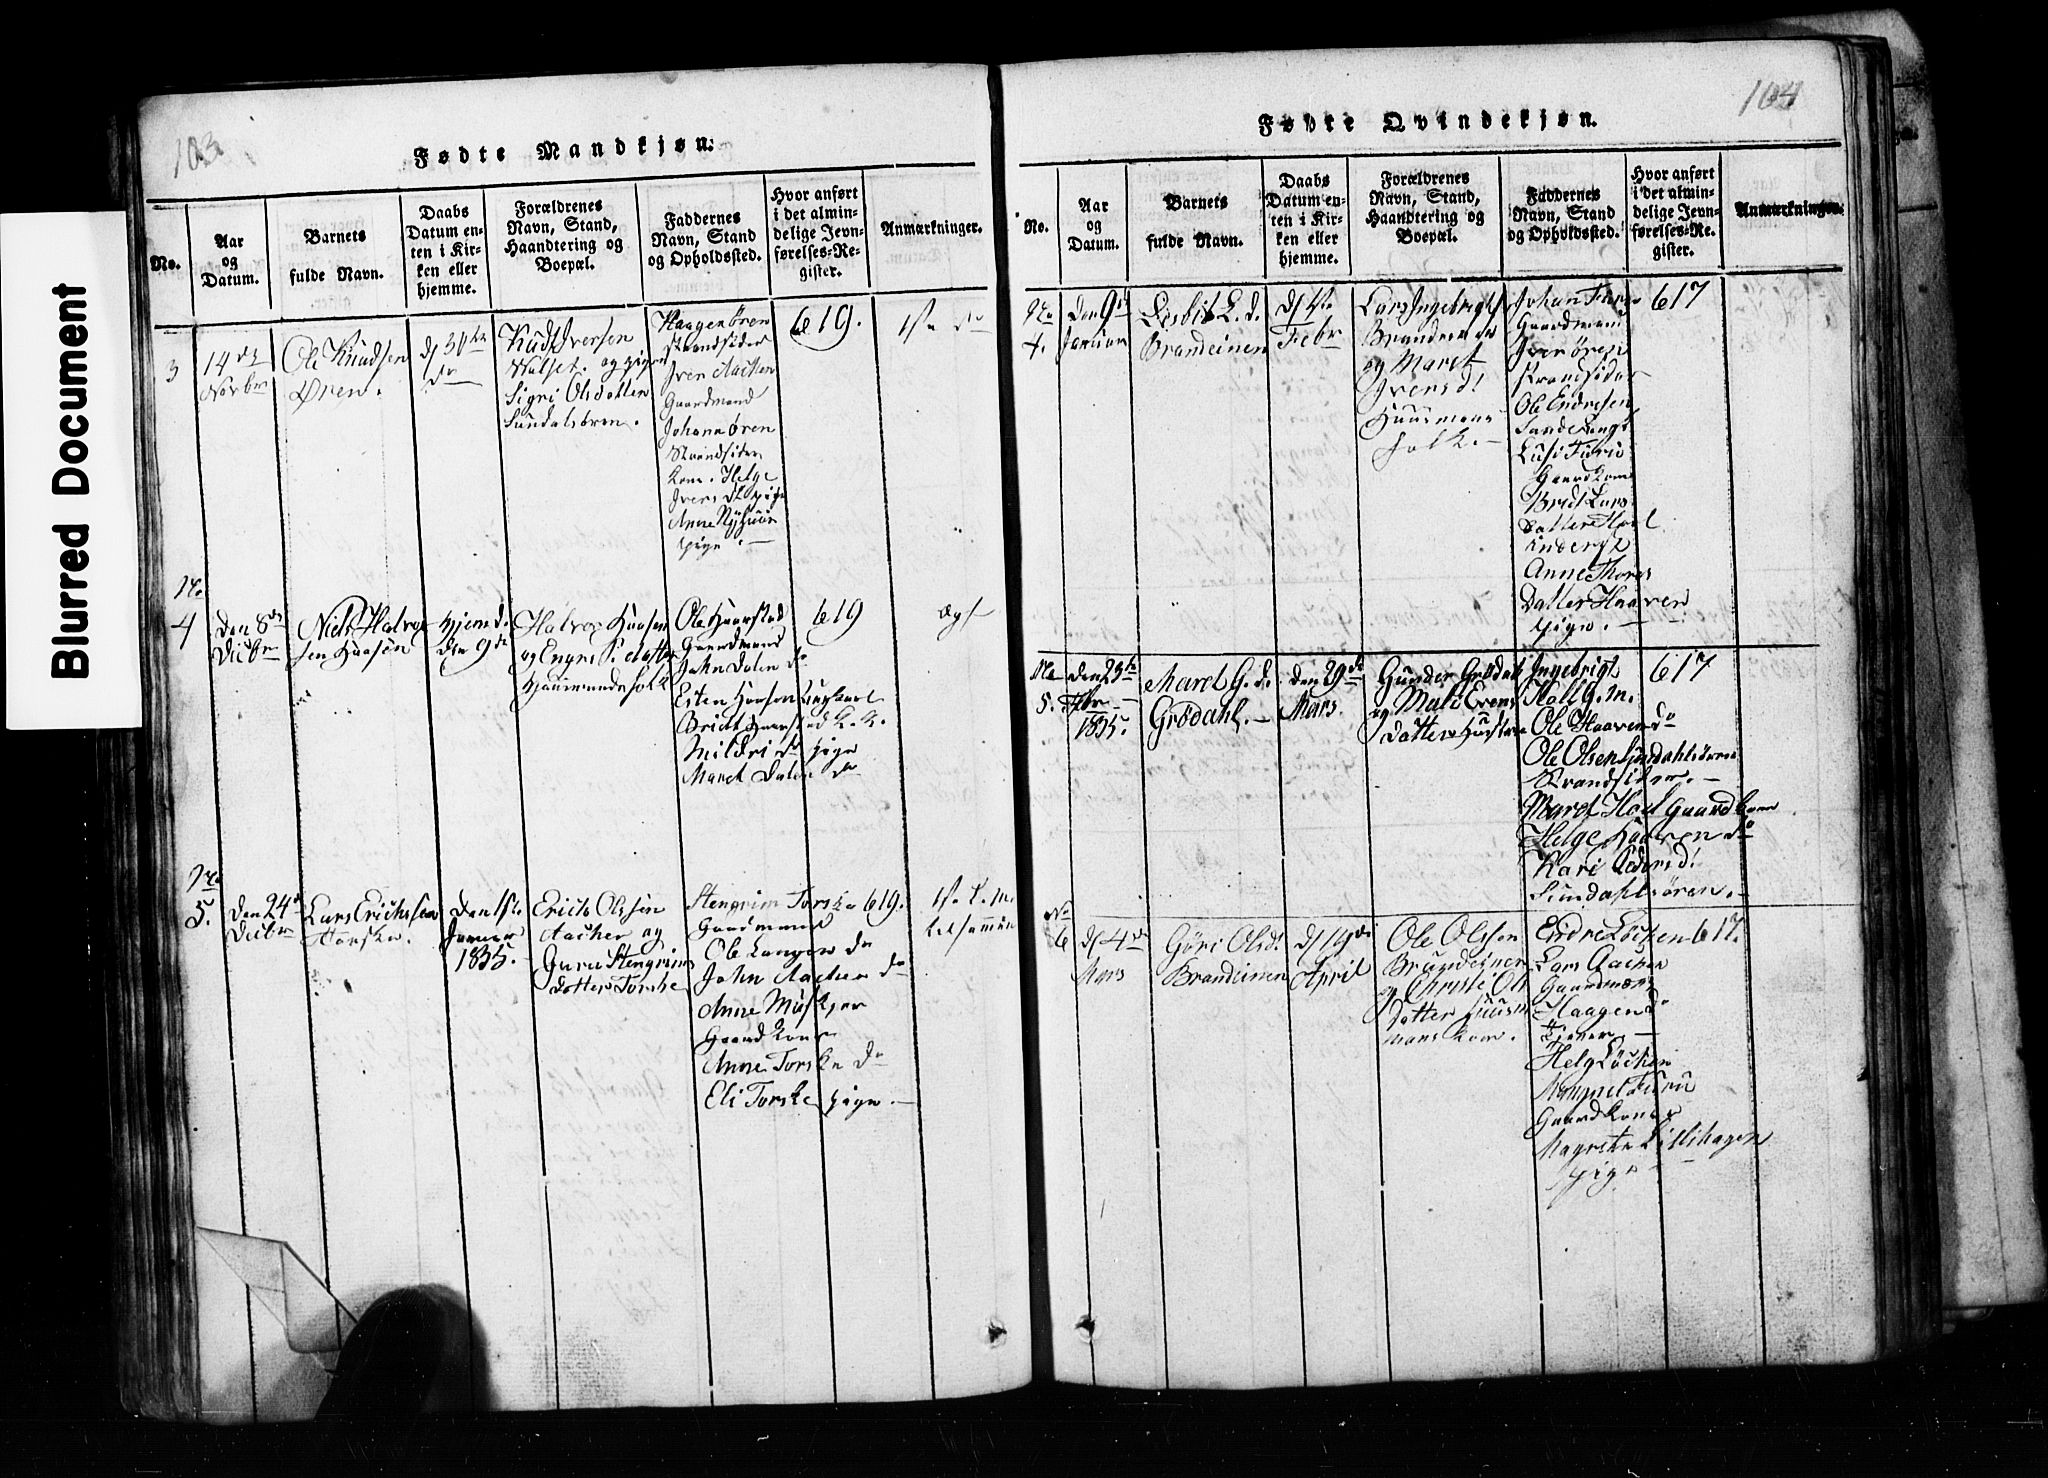 Blurred Document
103
Fødte Mandkjøn.
No.
Aar
og
Datum.
Barnets
fulde Navn.
Daabs
Datum en-
ten i Kir-
ken eller
hjemme.
Forældrenes
Navn, Stand,
Haandtering og
Boepæl.
Faddernes
Navn, Stand
og Opholdssted.
Hvor anført
i det almin-
delige Jevn-
førelses-Re-
gister.
Anmærkninger.
3
14 de
Novbr
Ole Knudsen
Øren.
d 30te
do
Knud Iversen
og pigen
Sigri Olsdatter
Sundalsøren.
Haagen Øren
Strandsider
Iver
Gaardmand
Johan Øren
Strandsider
Kone. Helge
Ivers D. pige
Anne Nÿhuus
pige.
619.
No
4
Den 8de
Decbr
Niels Halvor
sen Haasen
Hjemd.
den 9de
Halvor Haasen
og
Huusmandsfolk
Ole Haarstad
Gaardmand
John Dalen do
Esten Haasen Ungkarl
Brit Haarstad K.
Mildri do pige
Maret Dalen do
619
No
5.
Den 24de
Decbr
Lars Erichssøn
Torske.
Den 1ste
Januar
1835.
Erich Olssøn
Aacher og
Guru Stengrims
Datter Torske
Stengrim Torske
Gaardmand
Ole Langer do
John Aacher do
Anne Muskjær
Gaard kone
Anne Torske do
Eli Torske pige
619.
104
Fødte Qvindekjøn.
No.
Aar
og
Datum.
Barnets
fulde Navn.
Daabs
Datum en-
ten i Kir-
ken eller
hjemme.
Forældrenes
Navn, Stand,
Haandtering og
Boepæl.
Faddernes
Navn, Stand
og Opholdssted.
Hvor anført
i det almin-
delige Jevn-
førelses-Re-
gister.
Anmærkninger.
No
4.
Den 9de
Januar
Lisbit L. d.
Brandeinen
d 1ste
Febr
Lars Ingebrigts
og Maret
Iversd!
Huusmans
folk.
Johan Furu
Gaardmand
Iver Øren
Strandsider
Ole Endresen
Lusi Furu
Gaardkone
Brit Lars
Datter Hoel
Anne Thores
Datter Haaven
pige.
617
No
5.
den 23de
Febr
1835.
Maret G. d.
Grødahl.
den 29de
Mars
Gunder Grødahl
og Mali Evens
Datter Hustrue
Ingebrigt
Holl G. m.
Ole Haaven do
Ole Olsen Sundahlsøren
Strandsider.
Maret Hoel Gaardkone
Helge Haaven do
Kari
Sundahlsøren.
617
No
6
d 4de
Mars
Göri Olsd!
Brandeinen
d 19de
April
Ole Olssen
Brandeinen
og Christe Ols
Datter Huus
mans kone.
Endre Løchen
Lars Aacher
Gaardmænd
Haagen do
Helg Løchen
Furu
Gaardkoner
Magrethe Lillihagen
pige
617.